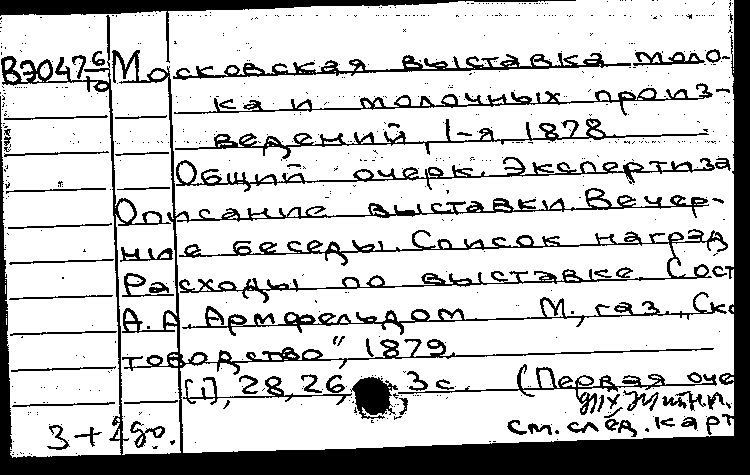 ВЭ047 6/10 Московская выставка моло-
ка и молочных произ-
ведений, 1-я, 1878.
Общий очерк. Экспертиза
Описание выставки. Вечер-
ние беседы. Список наград
Расходы по выставке. Сост
А. А. Армфельдом М., газ. „Ско
товодство", 1879.
[1], 28, 26, 3 с. (Первая оче
см. след. карт
3 +